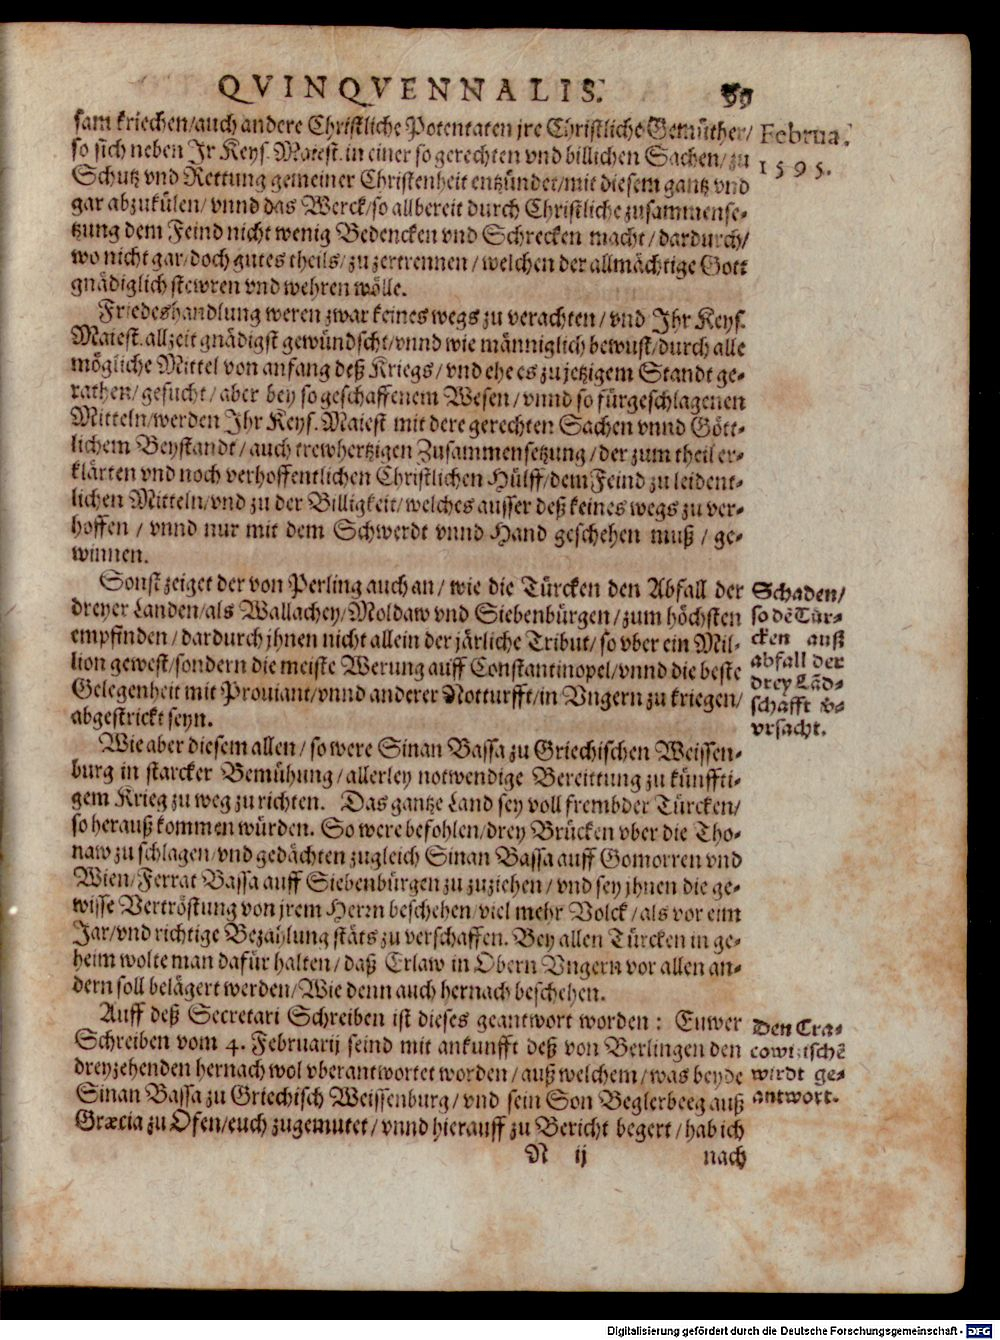 QVINQVENNALIS. 99
sam kriechen/auch andere Christliche Potentaten jre Christliche Gemüther/
so sich neben Jr Keys. Maiest. in einer so gerechten vnd billichen Sachen/zu
Schutz vnd Rettung gemeiner Christenheit entzündet/mit diesem gantz vnd
gar abzukülen/vnnd das Werck/so allbereit durch Christliche zusammense-
tzung dem Feind nicht wenig Bedencken vnd Schrecken macht/dardurch/
wo nicht gar/doch gutes theils/zu zertrennen/welchen der allmächtige Gott
gnädiglich stewren vnd wehren wölle.
Februa.
1595.
Friedeshandlung weren zwar keines wegs zu verachten/vnd Ihr Keys.
Maiest. allzeit gnädigst gewündscht/vnnd wie männiglich bewust/durch alle
mögliche Mittel von anfang deß Kriegs/vnd ehe es zu jetzigem Standt ge-
rathen/gesucht/aber bey so geschaffenem Wesen/vnnd so fürgeschlagenen
Mitteln/werden Ihr Keys. Maiest mit dere gerechten Sachen vnnd Gött-
lichem Beystandt/auch trewhertzigen Zusammensetzung/der zum theil er-
klärten vnd noch verhoffentlichen Christlichen Hülff/dem Feind zu leident-
lichen Mitteln/vnd zu der Billigkeit/welches ausser deß keines wegs zu ver-
hoffen/vnnd nur mit dem Schwerdt vnnd Hand geschehen muß/ge-
winnen.
Sonst zeiget der von Perling auch an/wie die Türcken den Abfall der
dreyer Landen/als Wallachey/Moldaw vnd Siebenbürgen/zum höchsten
empfinden/dardurch jhnen nicht allein der järliche Tribut/so vber ein Mil-
lion gewest/sondern die meiste Werung auff Constantinopel/vnnd die beste
Gelegenheit mit Prouiant/vnnd anderer Notturfft/in Vngern zu kriegen/
abgestrickt seyn.
Schaden/
so dē Tür-
cken auß
abfall der
drey Lād-
schafft v-
vrsacht.
Wie aber diesem allen/so were Sinan Bassa zu Griechischen Weissen-
burg in starcker Bemühung/allerley notwendige Bereittung zu künffti-
gem Krieg zu weg zu richten. Das gantze Land sey voll frembder Türcken/
so herauß kommen würden. So were befohlen/drey Brücken vber die Tho-
naw zu schlagen/vnd gedächten zugleich Sinan Bassa auff Gomorren vnd
Wien/Ferrat Bassa auff Siebenbürgen zu zuziehen/vnd sey jhnen die ge-
wisse Vertröstung von jrem Herrn beschehen/viel mehr Volck/als vor eim
Jar/vnd richtige Bezahlung stäts zu verschaffen. Bey allen Türcken in ge-
heim wolte man dafür halten/daß Erlaw in Obern Vngern vor allen an-
dern soll belägert werden/Wie denn auch hernach beschehen.
Auff deß Secretari Schreiben ist dieses geantwort worden: Euwer
Schreiben vom 4. Februarij seind mit ankunfft deß von Berlingen den
dreyzehenden hernach wol vberantwortet worden/auß welchem/was beyde
Sinan Bassa zu Griechisch Weissenburg/vnd sein Son Beglerbeeg auß
Græcia zu Ofen/euch zugemutet/vnnd hierauff zu Bericht begert/hab ich
Den Cra-
cowitischē
wirdt ge-
antwort.
N ij nach
Digitalisierung gefördert durch die Deutsche Forschungsgemeinschaft - DFG